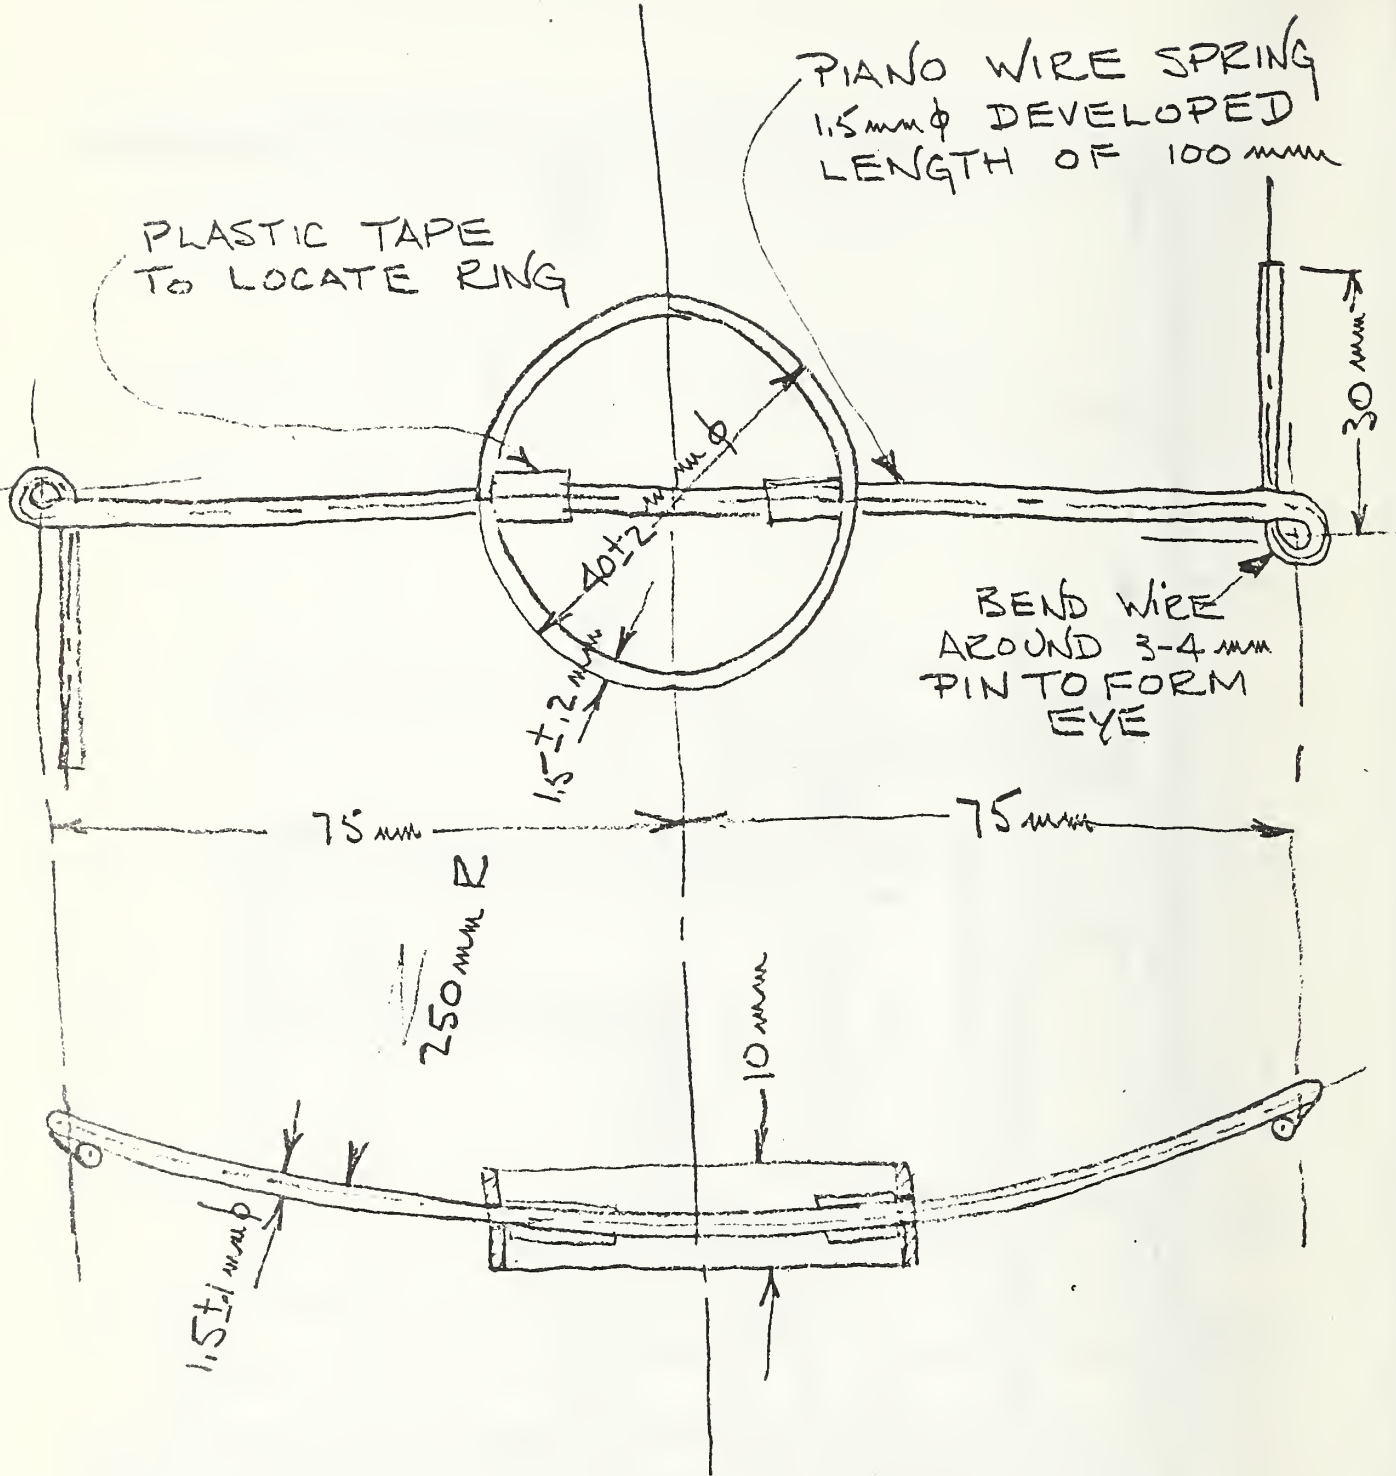 PIANO WIRE SPRING
1.5mmφ DEVELOPED
LENGTH OF 100 mm
PLASTIC TAPE
TO LOCATE RING
30 mm
40±2 mm φ
1.5±.2 mm
BEND WIRE
AROUND 3-4 mm
PIN TO FORM
EYE
75 mm
75 mm
250mm R
10 mm
1.5±.1 mmφ